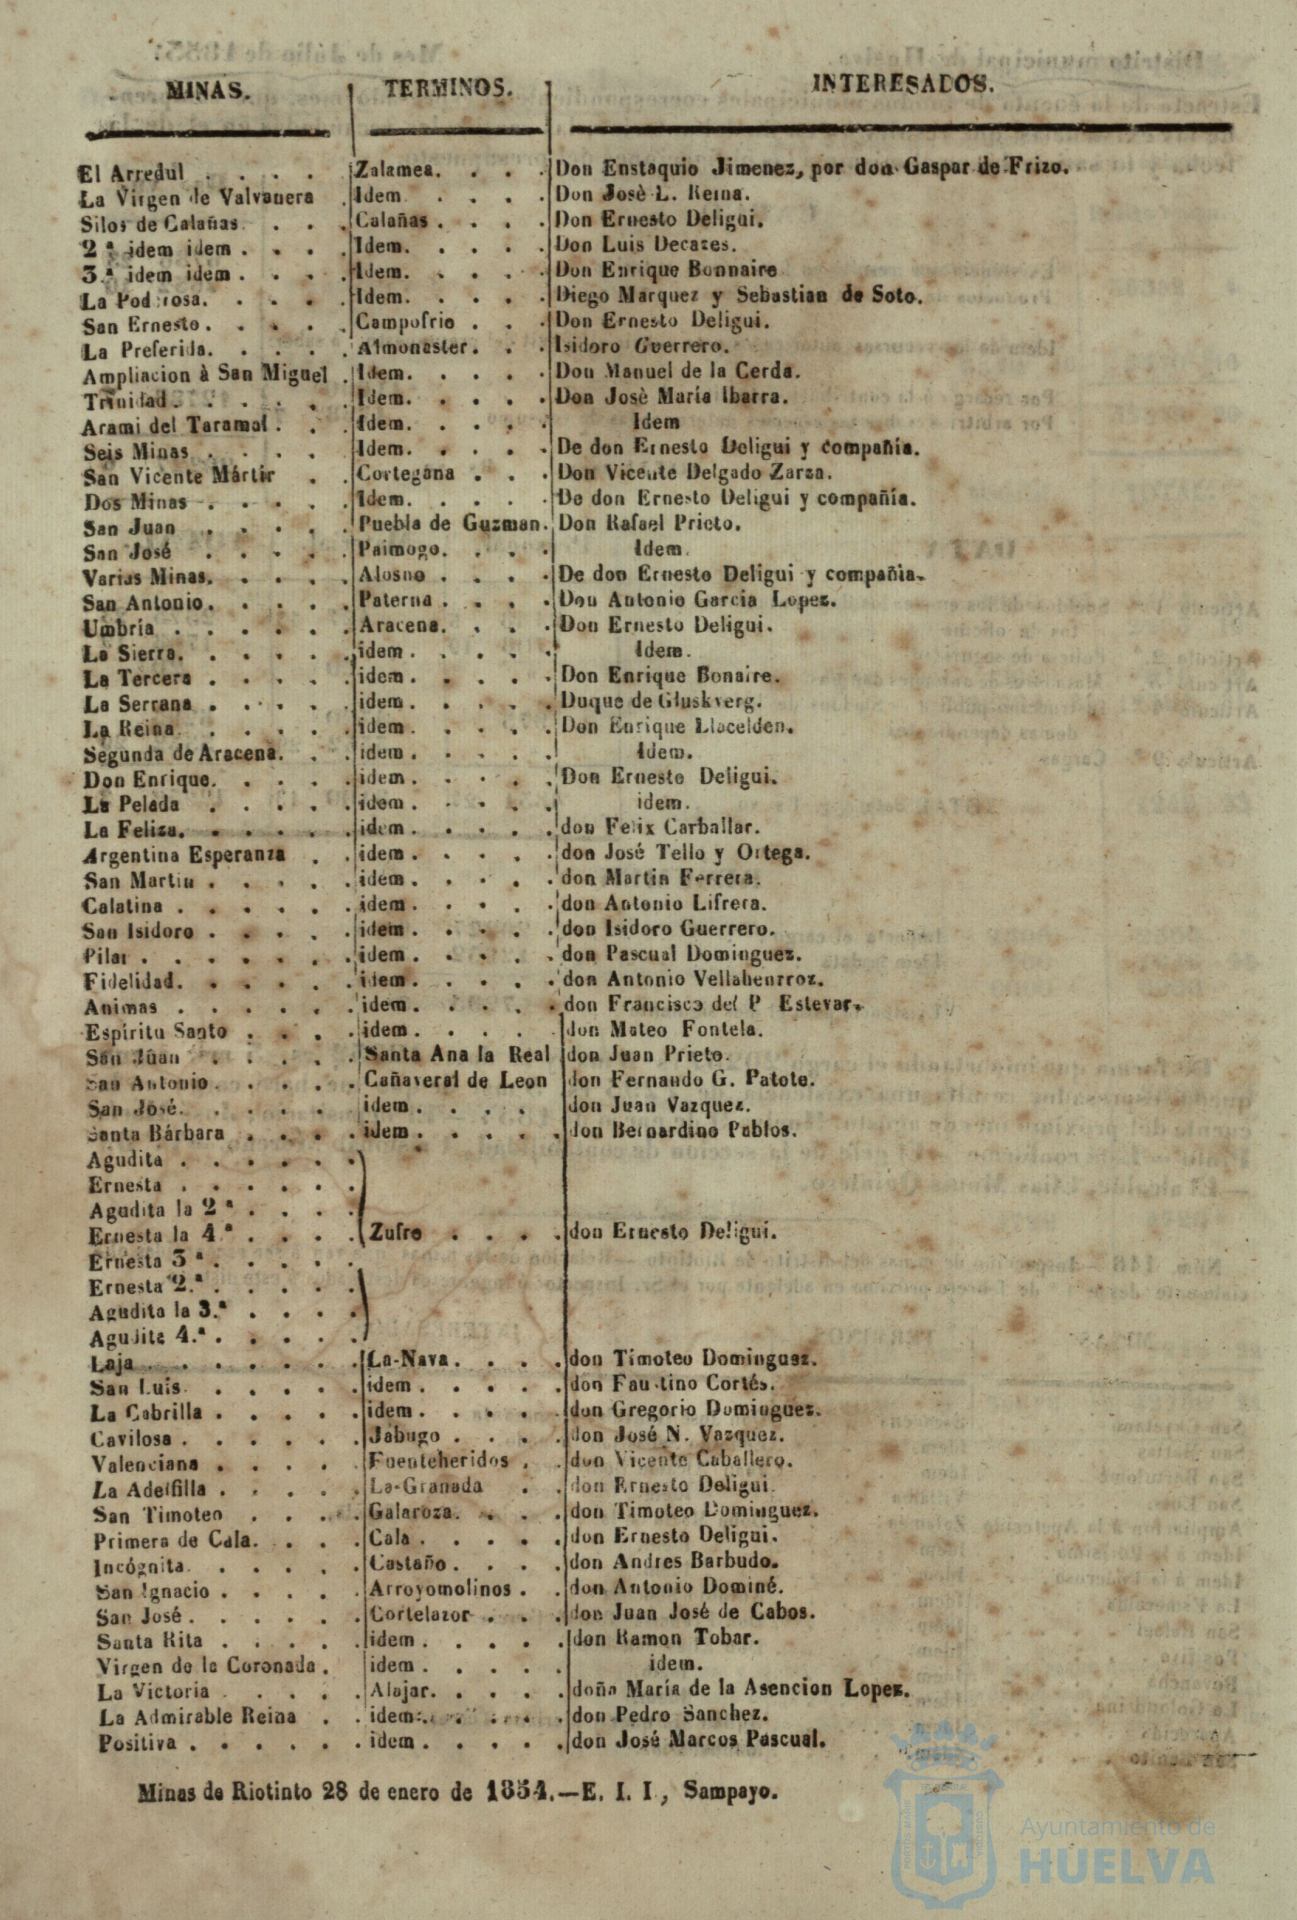 MINAS. TERMINOS. INTERESADOS.
El Arredul . . . . Zalamea. . . . Don Enstaquio Jimenez, por don Gaspar de Frizo.
La Virgen de Valvanera . Idem . . . . Don Josè L. Reina.
Silos de Calañas . . . Calañas . . . . Don Ernesto Deligui.
2.ª idem idem . . . . Idem. . . . . Don Luis Decazes.
3.ª idem idem . . . . Idem. . . . . Don Enrique Bonnaire
La Poderosa. . . . . Idem. . . . . Diego Marquez y Sebastian de Soto.
San Ernesto . . . . . Campofrio . . . Don Ernesto Deligui.
La Preferida. . . . . Almonaster. . . Isidoro Guerrero.
Ampliacion à San Miguel . Idem. . . . . Don Manuel de la Cerda.
Trinidad . . . . . . Idem. . . . . Don Josè María Ibarra.
Arami del Taramal . . . Idem. . . . . Idem
Seis Minas . . . . . Idem. . . . . De don Ernesto Deligui y compañia.
San Vicente Mártir . . Cortegana . . . Don Vicente Delgado Zarza.
Dos Minas . . . . . Idem. . . . . De don Ernesto Deligui y compañía.
San Juan . . . . . Puebla de Guzman. Don Rafael Prieto.
San José . . . . . Paimogo. . . . Idem.
Varias Minas. . . . . Alosno . . . . De don Ernesto Deligui y compañia.
San Antonio. . . . . Paterna . . . . Don Antonio Garcia Lopez.
Umbría . . . . . . Aracena. . . . Don Ernesto Deligui.
La Sierra. . . . . . idem . . . . . Idem.
La Tercera . . . . . idem . . . . . Don Enrique Bonaire.
La Serrana . . . . . idem . . . . . Duque de Gluskverg.
La Reina . . . . . idem . . . . . Don Enrique Llacelden.
Segunda de Aracena. . . idem . . . . . Idem.
Don Enrique. . . . . idem . . . . . Don Ernesto Deligui.
La Pelada . . . . . idem . . . . . idem.
La Feliza. . . . . . idem . . . . . don Felix Carballar.
Argentina Esperanza . . idem . . . . . don José Tello y Ortega.
San Martin . . . . . idem . . . . . don Martin Ferrera.
Calatina . . . . . . idem . . . . . don Antonio Lifrera.
San Isidoro . . . . . idem . . . . . don Isidoro Guerrero.
Pilar . . . . . . . idem . . . . . don Pascual Dominguez.
Fidelidad. . . . . . idem . . . . . don Antonio Vellahenrroz.
Animas . . . . . . idem . . . . . don Francisco del P Estevar.
Espíritu Santo . . . . idem . . . . don Mateo Fontela.
San Juan . . . . . Santa Ana la Real don Juan Prieto.
San Antonio . . . . . Cañaveral de Leon don Fernando G. Patote.
San José. . . . . idem . . . . don Juan Vazquez.
Santa Bárbara . . . . idem . . . . . don Bernardino Pablos.
Agudita . . . . . .
Ernesta . . . . . .
Agudita la 2.ª . . . .
Ernesta la 4.ª . . . . Zufre . . . . don Ernesto Deligui.
Ernesta 3.ª . . . . .
Ernesta 2.ª . . . . .
Agudita la 3.ª . . . .
Agudita 4.ª . . . . .
Laja . . . . . . . La-Nava. . . . don Timoteo Dominguez.
San Luis . . . . . idem . . . . . don Faustino Cortés.
La Cabrilla . . . . . idem . . . . . don Gregorio Dominguez.
Cavilosa . . . . . . Jabugo . . . . don José N. Vazquez.
Valenciana . . . . . Fuenteheridos . don Vicente Caballero.
La Adelfilla . . . . . La-Granada . . don Ernesto Deligui.
San Timoteo . . . . Galaroza. . . . don Timoteo Dominguez.
Primera de Cala. . . . Cala . . . . . don Ernesto Deligui.
Incógnita. . . . . . Castaño . . . . don Andres Barbudo.
San Ignacio . . . . . Arroyomolinos . . don Antonio Dominé.
San José . . . . . . Cortelazor . . . don Juan José de Cabos.
Santa Rita . . . . . idem . . . . . don Ramon Tobar.
Virgen de la Coronada . idem . . . . . idem.
La Victoria . . . . . Alajar. . . . . doña María de la Asencion Lopez.
La Admirable Reina . . idem . . . . . don Pedro Sanchez.
Positiva . . . . . . idem . . . . . don José Marcos Pascual.
Minas de Riotinto 28 de enero de 1854.—E. I. I., Sampayo.
Ayuntamiento de
HUELVA